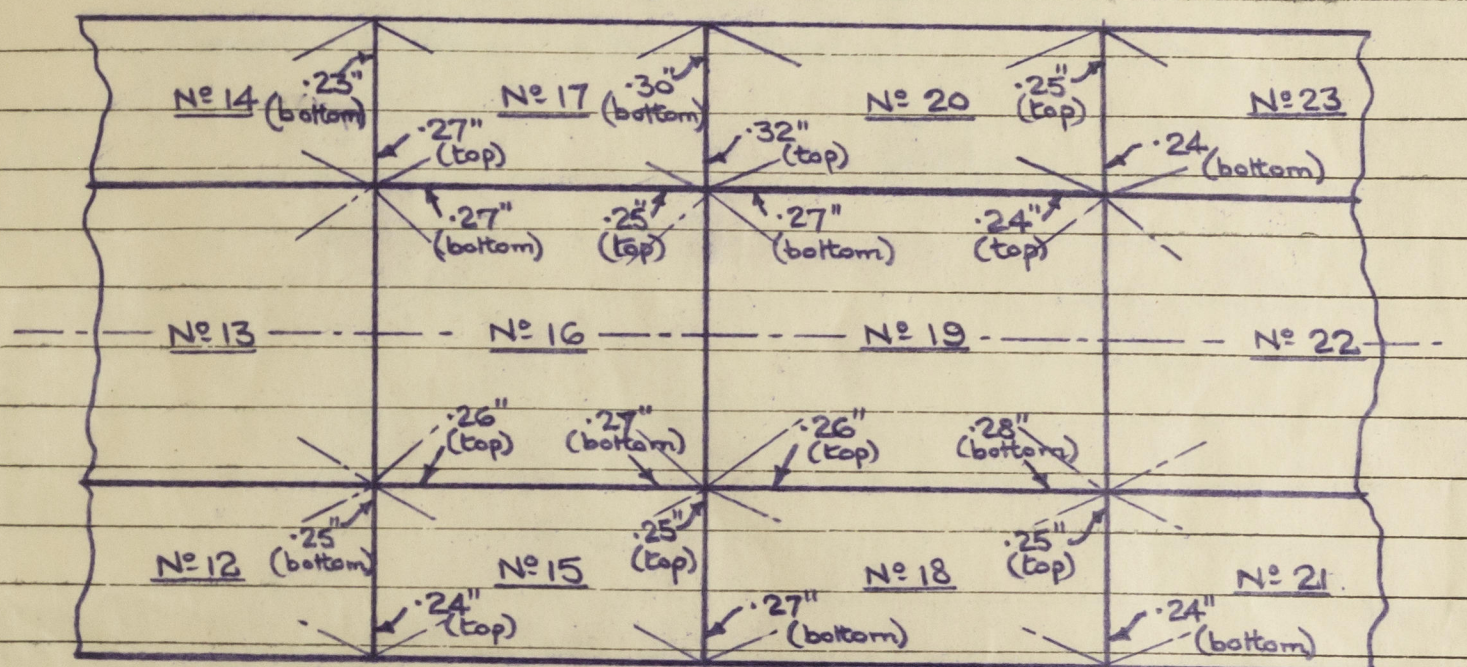 ·23"
·30"
·25"
Nº 14
(bottom)
Nº 17
(bottom)
Nº 20
(top)
Nº 23
·27"
(top)
·32"
(top)
·24
(bottom)
·27"
(bottom)
·25"
(top)
·27"
(bottom)
·24"
(top)
Nº 13
Nº 16
Nº 19
Nº 22
·26"
(top)
·27"
(bottom)
·26"
(top)
·28"
(bottom)
·25"
(bottom)
·25"
(top)
·25"
(top)
Nº 12
Nº 15
Nº 18
Nº 21
·24"
(top)
·27"
(bottom)
·24"
(bottom)